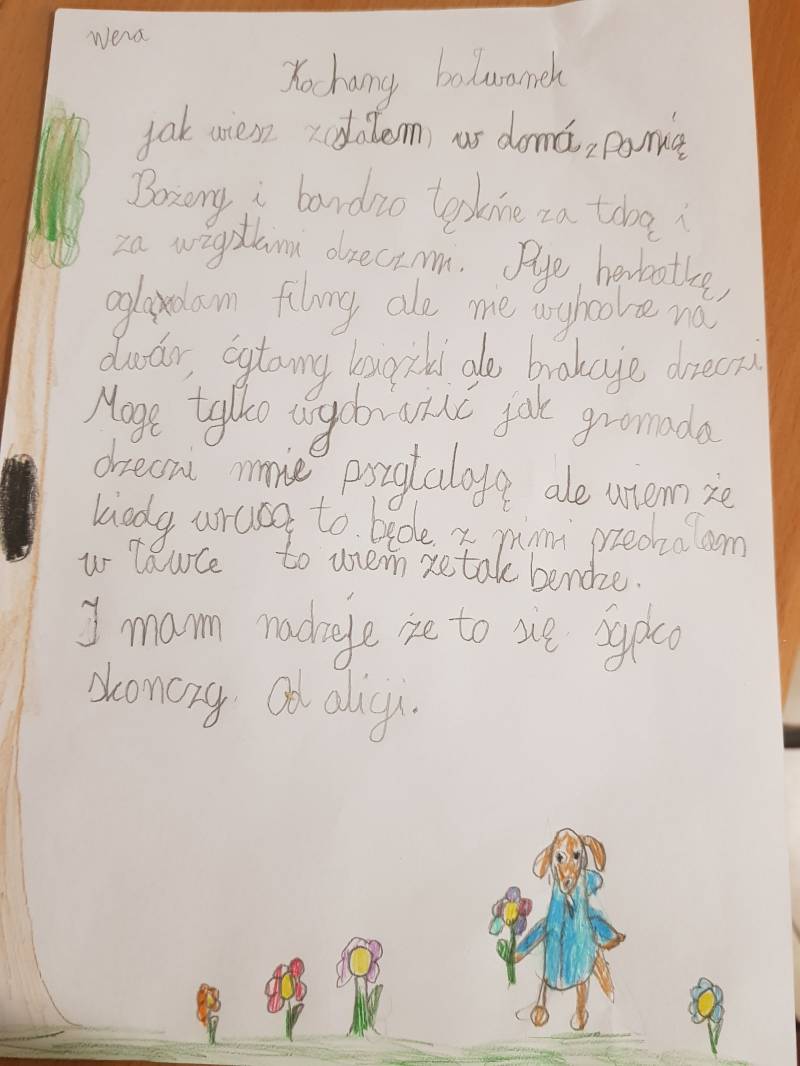 Wera
Kochany bałwanek
jak wiesz zostałem w domá z panią
Bożeny i bardzo tęsknie za tobą i
za wzystkimi dzeczmi. Pije herbatkę,
oglądam filmy ale nie wyhodze na
dwór, ćytamy książki ale brakuje dzeczi
Mogę tylko wyobrazić jak gromada
dzeczi mnie pszytalają ale wiem że
kiedy wrucą to będe z nimi przedzałam
w ławce to wiem ze tak bendze.
I mam nadzeje że to się sypko
skonczy. Od alicji.